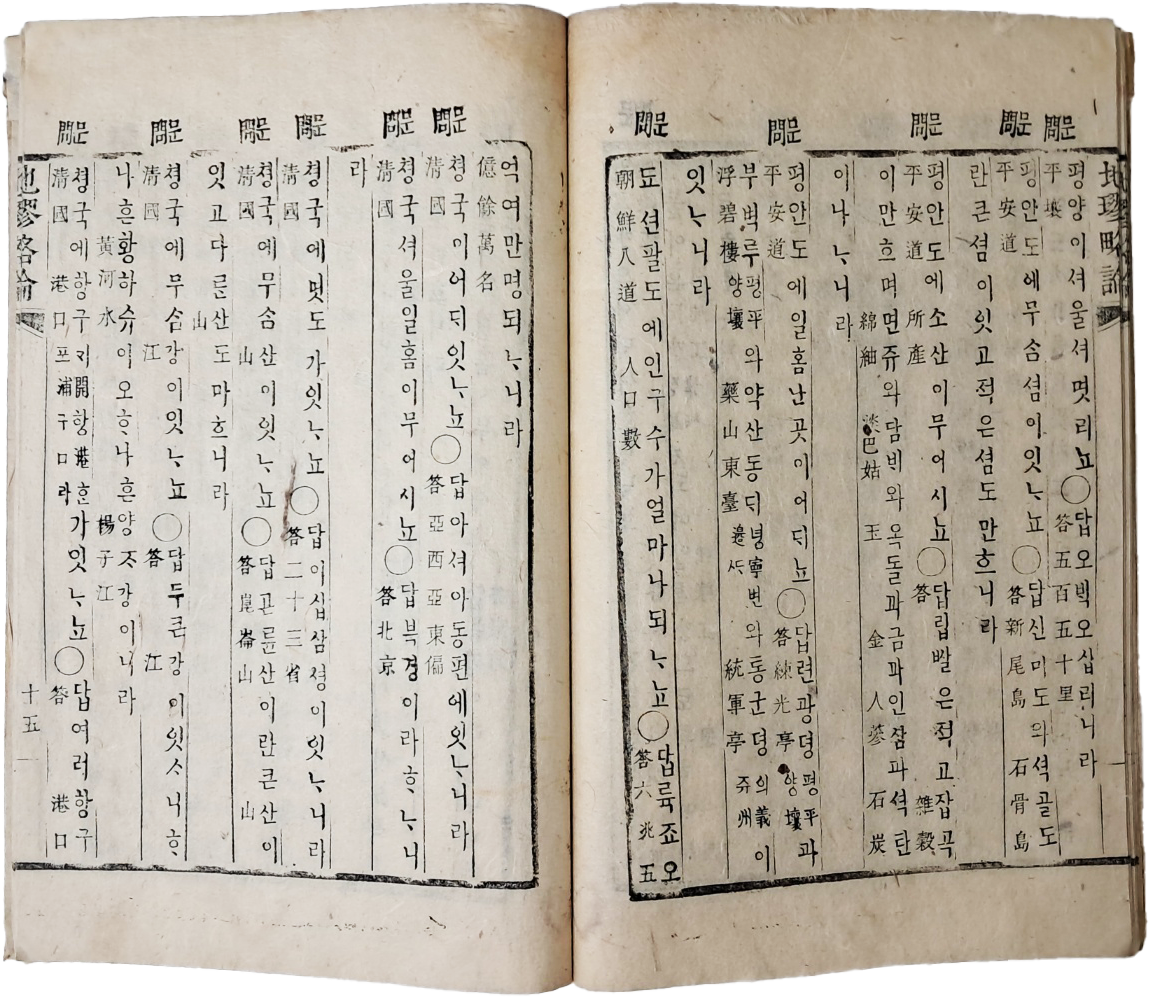 地璆略論
문問
평양이셔울셔몃리뇨◯답오ᄇᆡᆨ오십리니라
平壤 答五百五十里
문問
평안도에무ᄉᆞᆷ셤이잇ᄂᆞ뇨◯답신미도와셕골도
平安道 答新尾島 石骨島
란큰셤이잇고젹은셤도만흐니라
문問
평안도에소산이무어시뇨◯답립ᄡᆞᆯ은젹고잡곡
平安道 所產 答 雜穀
이만흐며면쥬와담ᄇᆡ와옥돌과금과인삼과셕탄
綿紬 淡巴姑 玉 金 人蔘 石炭
이나ᄂᆞ니라
문問
평안도에일홈난곳이어ᄃᆡ뇨◯답련광뎡평平양壤과
平安道 答練光亭
부벽루평平양壤와약산동ᄃᆡ녕寧변邊와통군뎡의義쥬州이
浮碧樓 藥山東臺 統軍亭
잇ᄂᆞ니라
문問
됴션팔도에인구수가얼마나되ᄂᆞ뇨◯답륙죠오
朝鮮八道 人口數 答六兆五
억여만명되ᄂᆞ니라
億餘萬名
문問
쳥국이어ᄃᆡ잇ᄂᆞ뇨◯답아셔아동편에잇ᄂᆞ니라
清國 答亞西亞東偏
문問
쳥국셔울일홈이무어시뇨◯답북경이라ᄒᆞᄂᆞ니
清國 答北京
라
문問
쳥국에몃도가잇ᄂᆞ뇨◯답이십삼셩이잇ᄂᆞ니라
清國 答二十三省
문問
쳥국에무ᄉᆞᆷ산이잇ᄂᆞ뇨◯답곤륜산이란큰산이
清國 山 答崑崙山 山
잇고다른산도마흐니라
山
문問
쳥국에무ᄉᆞᆷ강이잇ᄂᆞ뇨◯답두큰강이잇스니ᄒᆞ
清國 江 答 江
나흔황하슈이오ᄒᆞ나흔양ᄌᆞ강이니라
黃河水 楊子江
문問
쳥국에항구ᄀᆡ開항港ᄒᆞᆫ포浦구口라가잇ᄂᆞ뇨◯답여러항구
清國 港口 答 港口
地璆略論
十五